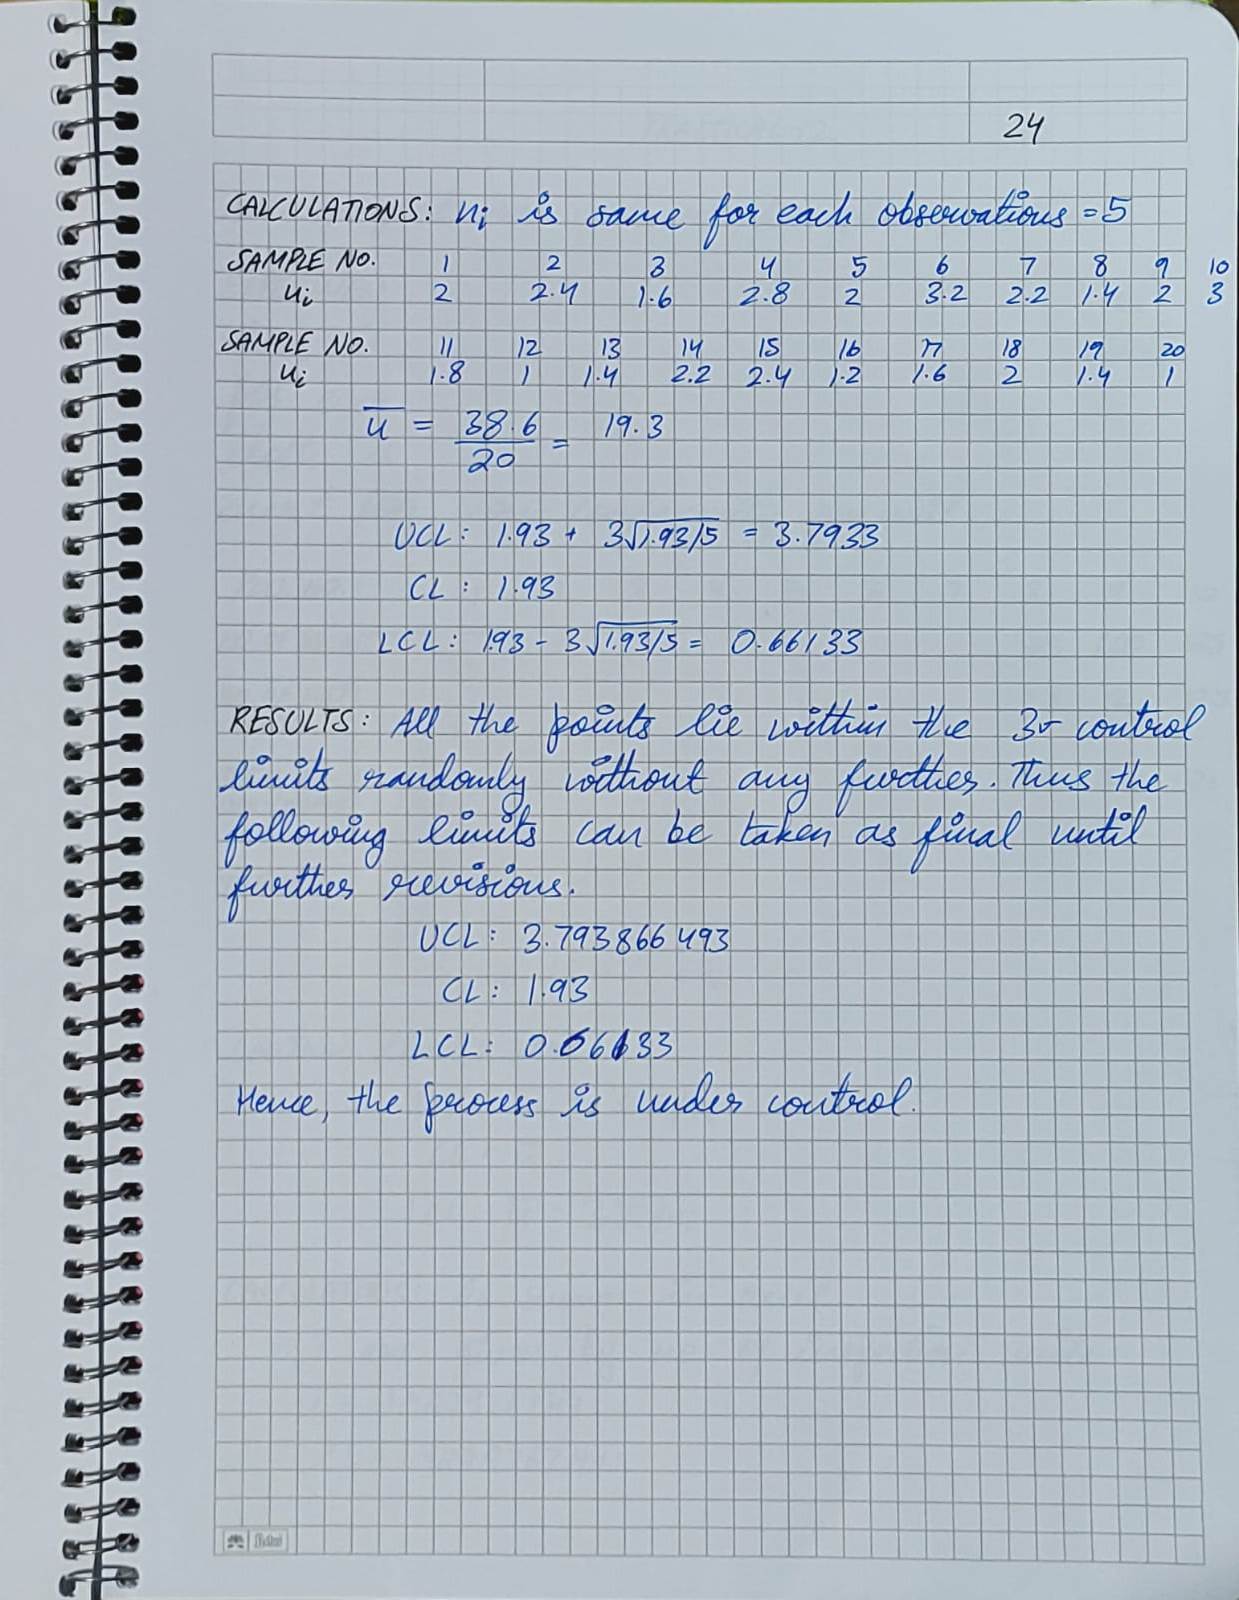 24
CALCULATIONS: ni is same for each observations = 5
SAMPLE NO. 1 2 3 4 5 6 7 8 9 10
ui 2 2.4 1.6 2.8 2 3.2 2.2 1.4 2 3
SAMPLE NO. 11 12 13 14 15 16 17 18 19 20
ui 1.8 1 1.4 2.2 2.4 1.2 1.6 2 1.4 1
u̅ = 38.6/20 = 19.3
UCL: 1.93 + 3√1.93/5 = 3.7933
CL: 1.93
LCL: 1.93 - 3√1.93/5 = 0.66133
RESULTS: All the points lie within the 3σ control
limits randomly without any further. Thus the
following limits can be taken as final until
further revisions.
UCL: 3.793866493
CL: 1.93
LCL: 0.66133
Hence, the process is under control.